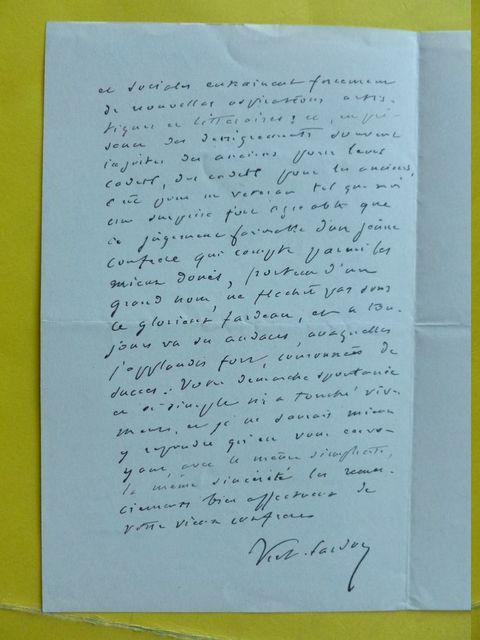 et sociales entraînent forcément
de nouvelles aspirations artis-
tiques et littéraires : et, en pré-
sence des dénigrements souvent
injustes des anciens pour leurs
cadets, des cadets pour les anciens,
c'est pour un vétéran tel que moi
une surprise fort agréable que
ce jugement favorable d'un jeune
confrère qui compte parmi les
mieux doués, porteur d'un
grand nom, ne fléchit pas sous
ce glorieux fardeau, et a tou-
jours eu des audaces, auxquelles
j'applaudis fort, couronnées de
succès. Votre démarche spontanée
et si simple m'a touché vive-
ment, et je ne saurais mieux
y répondre qu'en vous envo-
yant, avec la même simplicité,
la même sincérité les remer-
ciements bien affectueux de
votre vieux confrère
Vict. Sardou